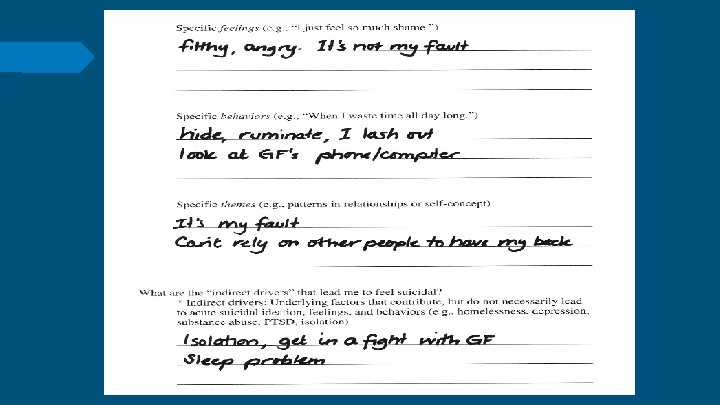 Specific feelings (e.g., "I just feel so much shame.")
filthy, angry. It's not my fault
Specific behaviors (e.g., "When I waste time all day long.")
hide, ruminate, I lash out
look at GF's phone/computer
Specific themes (e.g., patterns in relationships or self-concept)
It's my fault
Can't rely on other people to have my back
What are the "indirect drivers" that lead me to feel suicidal?
* Indirect drivers: Underlying factors that contribute, but do not necessarily lead
to acute suicidal ideation, feelings, and behaviors (e.g., homelessness, depression,
substance abuse, PTSD, isolation)
Isolation, get in a fight with GF
Sleep problem